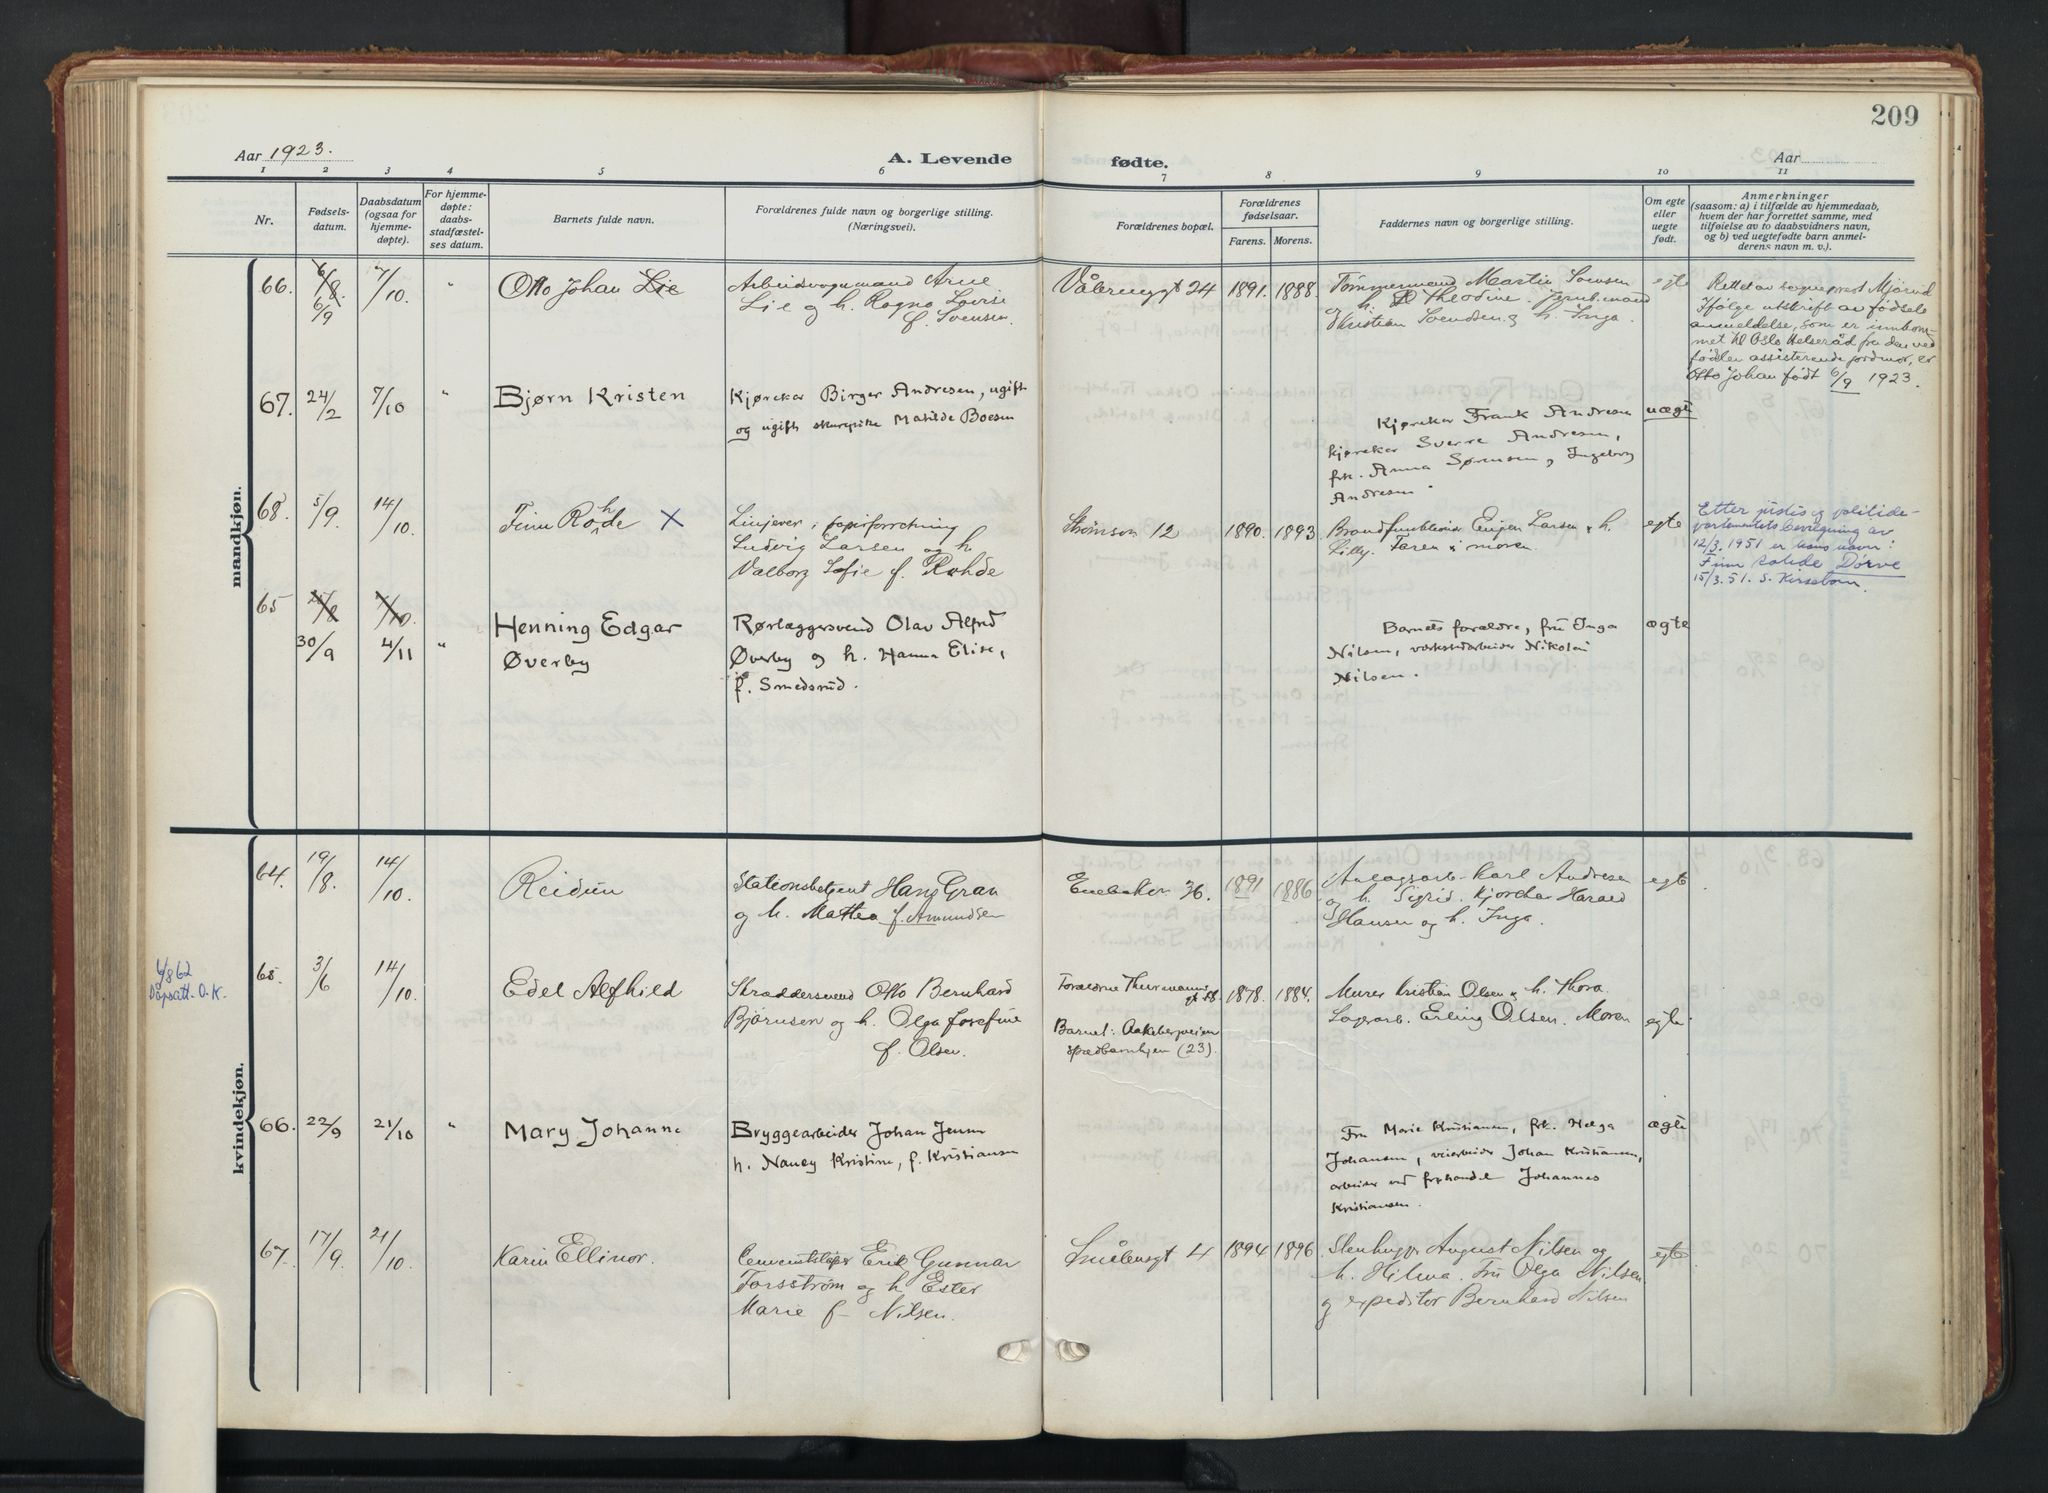 209
Aar 1923.
A. Levende fødte.
Aar
1 2 3 4 5 6 7 8 9 10 11
Nr.
Fødsels-
datum.
Daabsdatum
(ogsaa for
hjemme-
døpte).
For hjemme-
døpte:
daabs-
stadfæstel-
ses datum.
Barnets fulde navn.
Forældrenes fulde navn og borgerlige stilling.
(Næringsvei).
Forældrenes bopæl.
Forældrenes
fødselsaar.
Farens. Morens.
Faddernes navn og borgerlige stilling.
Om egte
eller
uegte
født.
Anmerkninger
(saasom: a) i tilfælde av hjemmedaab,
hvem der har forrettet samme, med
tilføielse av to daabsvidners navn,
og b) ved uegtefødte barn anmel-
derens navn m. v.).
mandkjøn.
66. 6/8. 6/9 7/10 "
Otto Johan Lie
Arbeidsvognmand Arne
Lie og h. Ragna Lovise
f. Svensen.
Vålerenggt 24 1891. 1888.
Tømmermand Martin Svensen
og h. Theodine. Jernb.mand
Kristian Svendsen og h. Inga.
egte
Rettet av sogneprest Mjøsud
Ifølge utskrift av fødsels
anmeldelse, som er innkom-
met til Oslo Helseråd fra den ved
fødslen assisterende jordmor, er
Otto Johan født 6/9 1923.
67. 24/2 7/10 "
Bjørn Kristen
Kjørekar Birger Andresen, ugift
og ugift skurepike Matilde Boesen
Kjørekar Frank Andresen
kjørekar Sverre Andresen,
frk. Anna Sørensen og Ingeborg
Andresen.
uægte
68. 5/9. 14/10.
Finn Rohde X
Linjerer i papirforretning
Ludvig Larsen og h.
Valborg Sofie f. Rohde
Strømsv 12 1890. 1893.
Brandfunktionær Eugen Larsen & h.
Lilly. Faren & moren.
egte
Etter justis og politide-
partementets bevegning av
12/3. 1951 er hans navn:
Finn Rohde Dørve
15/3. 51. S. Kirsebom.
65 7/10.
30/9 4/11 "
Henning Edgar
Øverby
Rørlæggersvend Olav Alfred
Øverby og h. Hanna Elise,
f. Smedsrud.
Barnets forældre, fru Inga
Nilsen, værkstedarbeider Nikolai
Nilsen.
ægte
kvindekjøn.
64. 19/8. 14/10.
Reidun
Stationsbetjent Hans Gran
og h. Mathea f. Amundsen
Enebakkv 36. 1891 1886
Anlægsarb. Karl Andresen
og h. Sigrid. Kjørekar Harald
Hansen og h. Inga.
egte
6/8 62
Dåpsatt. O.K.
65. 3/6 14/10.
Edel Alfhild
Skræddersvend Otto Bernhard
Bjørnsen og h. Olga Josefine
f. Olsen.
Forældrene Thurmanns
gt
Barnet: Aakebergveien
spædbarnhjem (23).
1878. 1884.
Murer Kristian Olsen og h. Thora.
Lagerarb. Erling Olsen. Moren
egte
66. 22/9 21/10 "
Mary Johanne
Bryggearbeider Johan Jensen
h. Nancy Kristine, f. Kristiansen
Fru Marie Kristiansen, frk. Helga
Johansen, veiarbeider Johan Kristiansen,
arbeider ved frøhandel Johannes
Kristiansen.
ægte
67. 17/9. 21/10.
Karin Ellinor.
Cementstøper Erik Gunnar
Torsstrøm og h Ester
Marie f. Nilsen.
Smålensgt 4 1894 1896
Stenhugger August Nilsen og
h. Hilma. Fru Olga Nilsen
og expeditør Bernhard Nilsen
egte